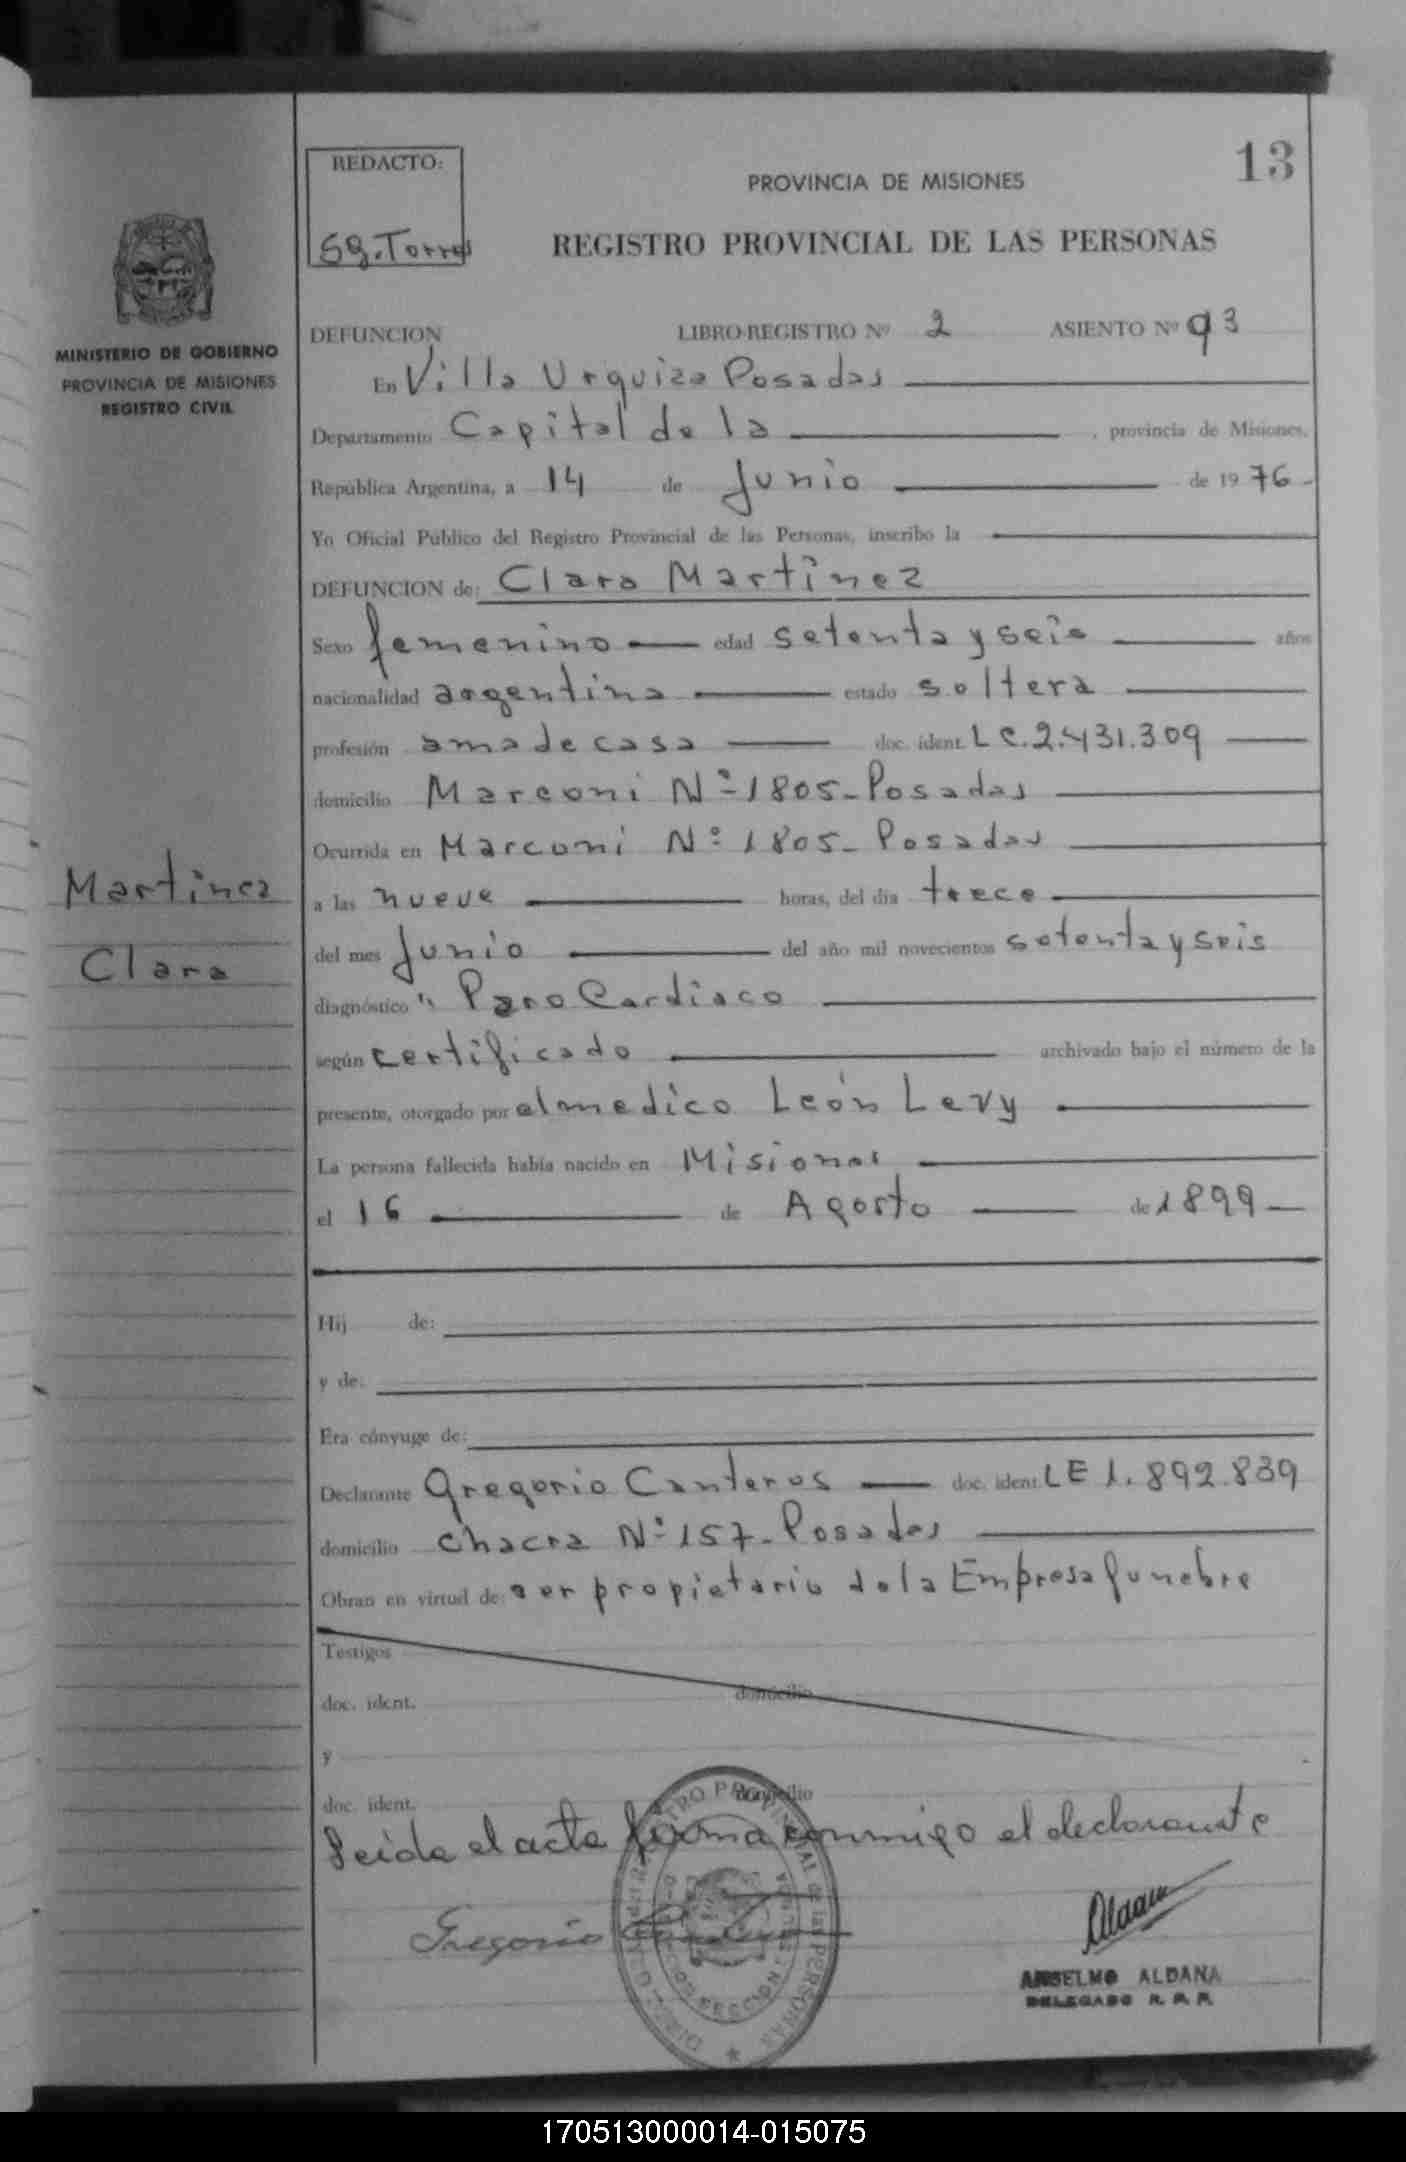 13
REDACTO:
Sg. Torres
PROVINCIA DE MISIONES
REGISTRO PROVINCIAL DE LAS PERSONAS
MINISTERIO DE GOBIERNO
PROVINCIA DE MISIONES
REGISTRO CIVIL
Martinez
Clara
DEFUNCION LIBRO-REGISTRO Nº 2 ASIENTO Nº 93
En Villa Urquiza Posadas
Departamento Capital de la , provincia de Misiones,
República Argentina, a 14 de Junio de 1976-
Yo Oficial Público del Registro Provincial de las Personas, inscribo la
DEFUNCION de: Clara Martinez
Sexo femenino edad setenta y seis años
nacionalidad argentina estado soltera
profesión ama de casa doc. ident. L C. 2.431.309
domicilio Marconi Nº 1805- Posadas
Ocurrida en Marconi Nº 1805- Posadas
a las nueve horas, del día trece
del mes Junio del año mil novecientos setenta y seis
diagnóstico " Paro Cardiaco
según certificado archivado bajo el número de la
presente, otorgado por el medico León Levy
La persona fallecida había nacido en Misiones
el 16 de Agosto de 1899-
Hij de:
y de:
Era cónyuge de:
Declarante Gregorio Canteros doc. ident. L E 1.892.839
domicilio Chacra Nº 157- Posadas
Obran en virtud de: ser propietario de la Empresa funebre
Testigos
doc. ident. domicilio
y
doc. ident. domicilio
Leida el acta firma conmigo el declarante
Gregorio Canteros
Aldana
ANSELMO ALDANA
DELEGADO R. P. P.
170513000014-015075